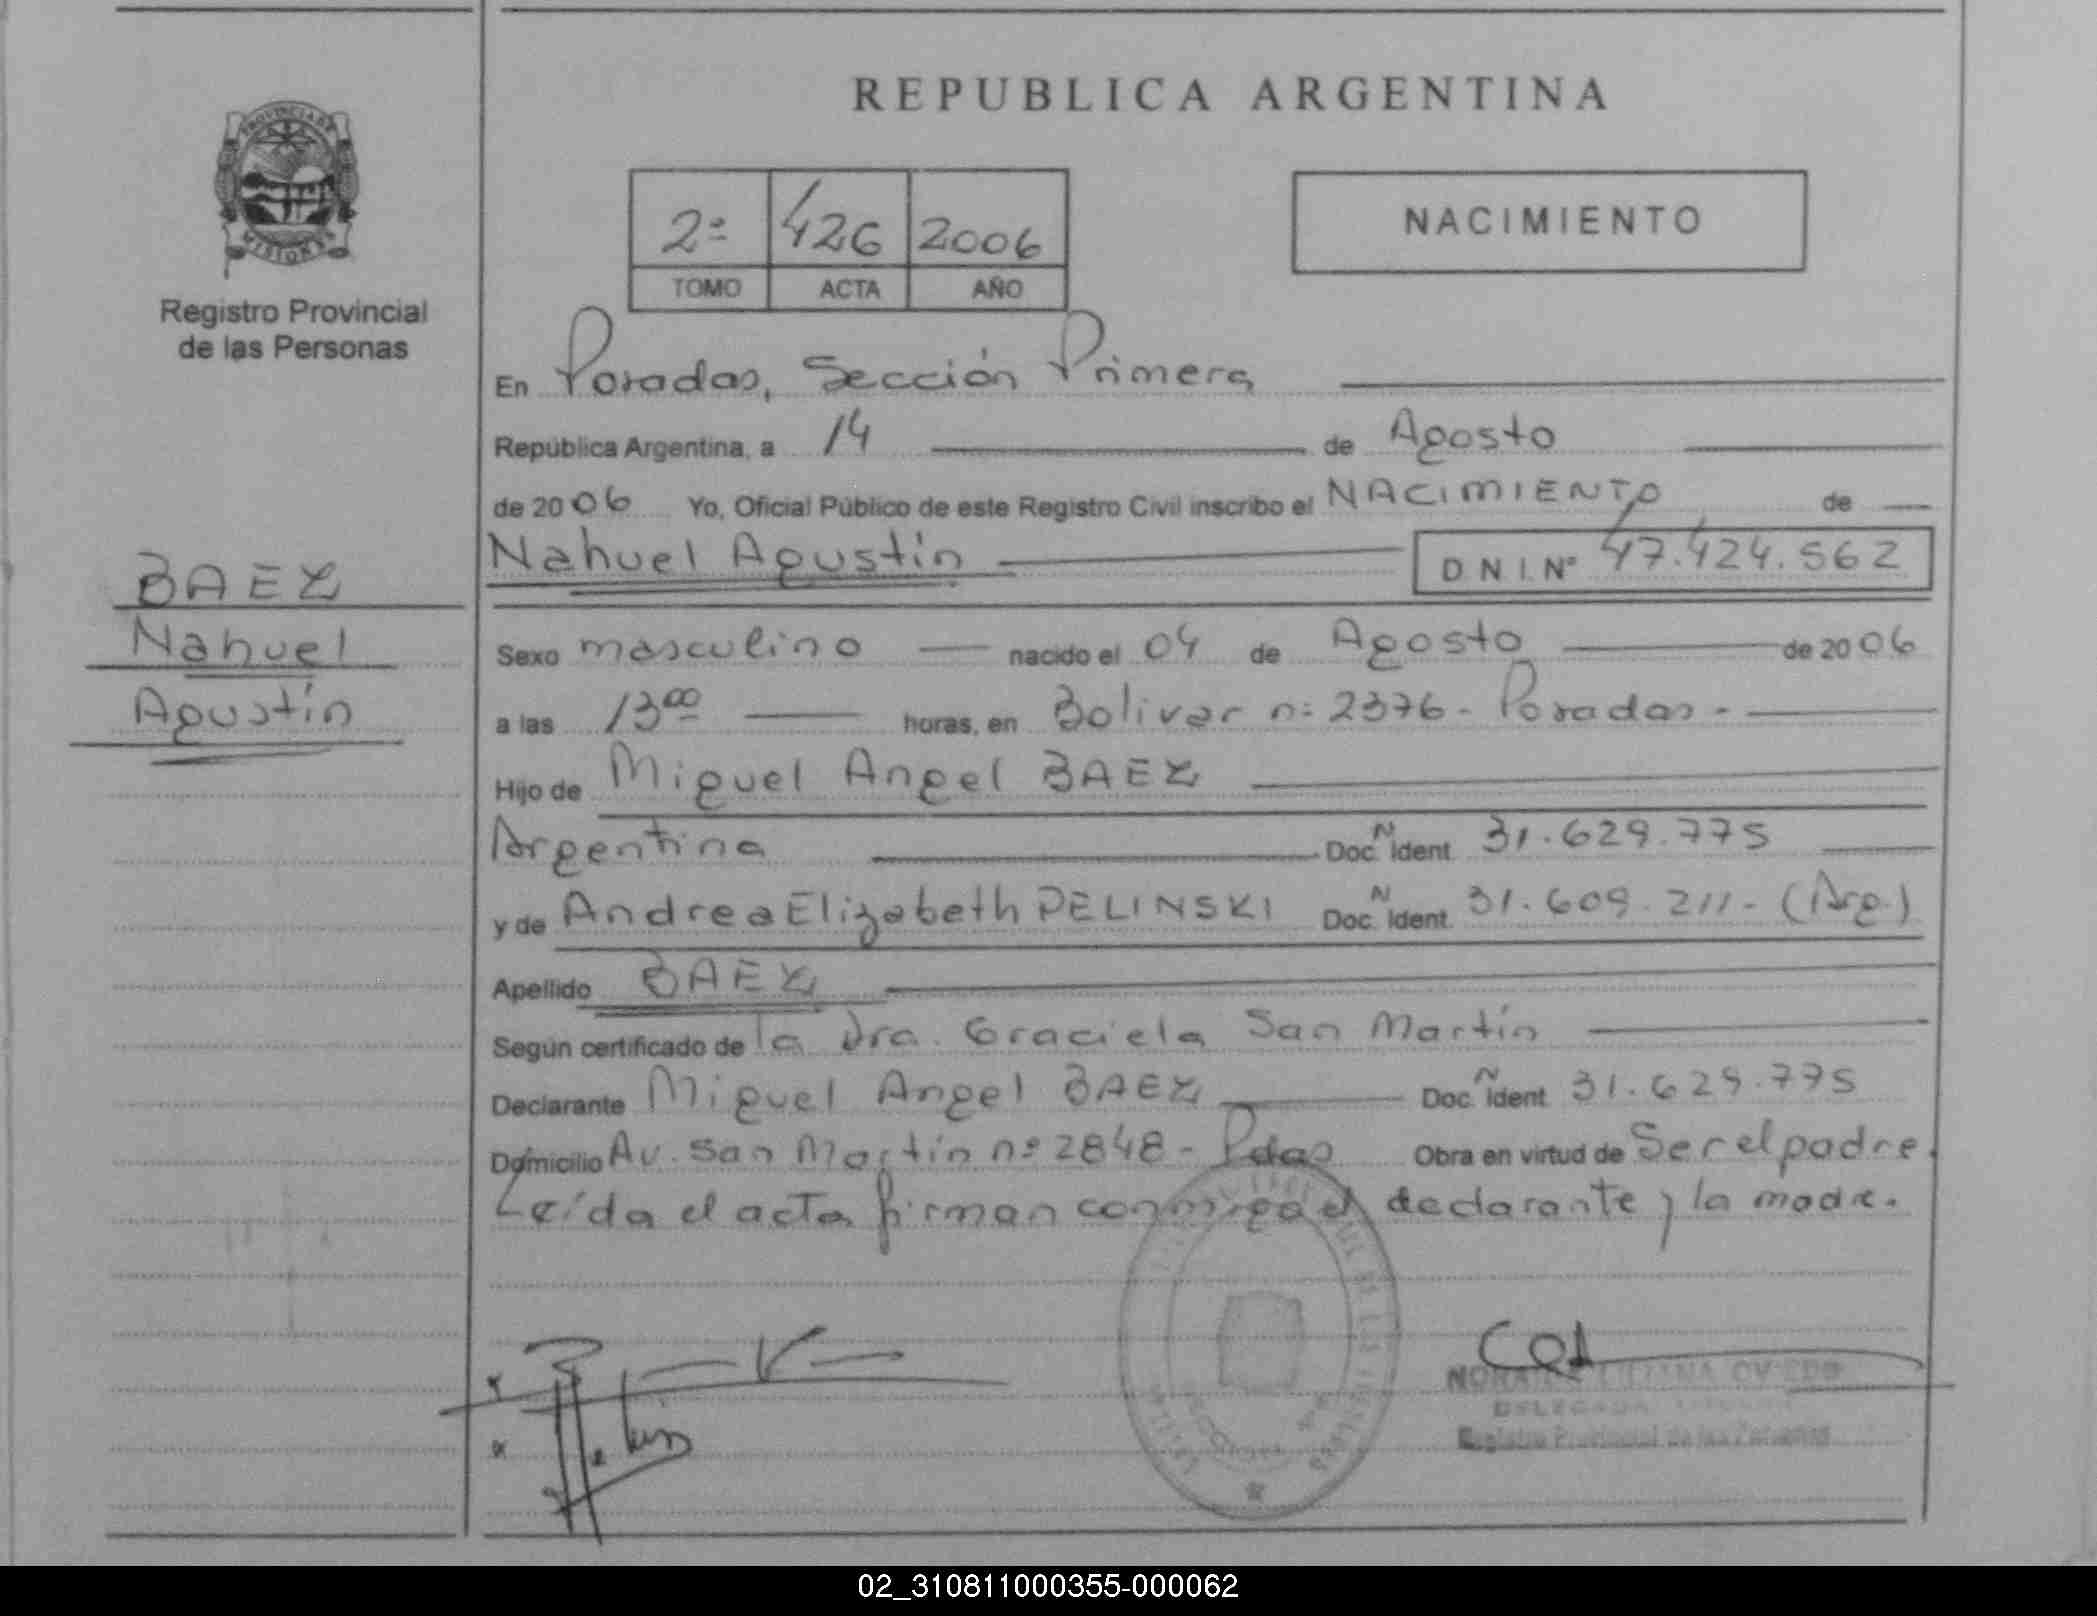 REPUBLICA ARGENTINA
PROVINCIA DE
MISIONES
Registro Provincial
de las Personas
2º 426 2006
TOMO ACTA AÑO
NACIMIENTO
En Posadas, Sección Primera
República Argentina, a 14 de Agosto
de 2006 Yo, Oficial Público de este Registro Civil inscribo el NACIMIENTO de
Nahuel Agustín D.N.I.Nº 47.424.562
BAEZ
Nahuel
Agustín
Sexo masculino nacido el 04 de Agosto de 2006
a las 13⁰⁰ horas, en Bolivar nº 2376 - Posadas -
Hijo de Miguel Angel BAEZ
Argentina Doc. N Ident. 31.629.775
y de Andrea Elizabeth PELINSKI Doc. N Ident. 31.609.211 - (Arg.)
Apellido BAEZ
Según certificado de la Dra. Graciela San Martín
Declarante Miguel Angel BAEZ Doc. N Ident. 31.629.775
Domicilio Av. San Martín nº 2848 - Pdas Obra en virtud de Ser el padre.
Leída el acta firman conmigo el declarante y la madre.
LILIANA OVIEDO
DELEGADA
Registro Provincial de las Personas
02_310811000355-000062